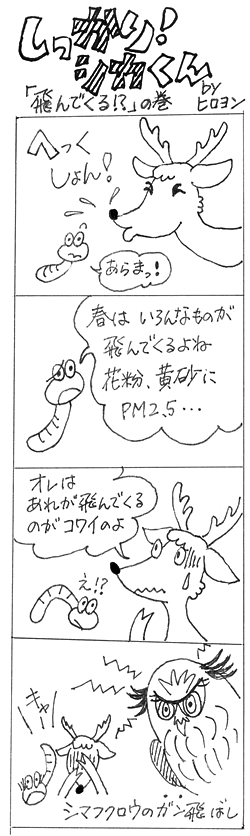 しっかり!
シカくん
by
ヒロヨン
「飛んでくる!?」の巻
へっく
しょん!
あらまっ!
春は いろんなものが
飛んでくるよね
花粉、黄砂に
PM2.5…
オレは
あれが飛んでくる
のがコワイのよ
え!?
キャー
シマフクロウのガン飛ばし